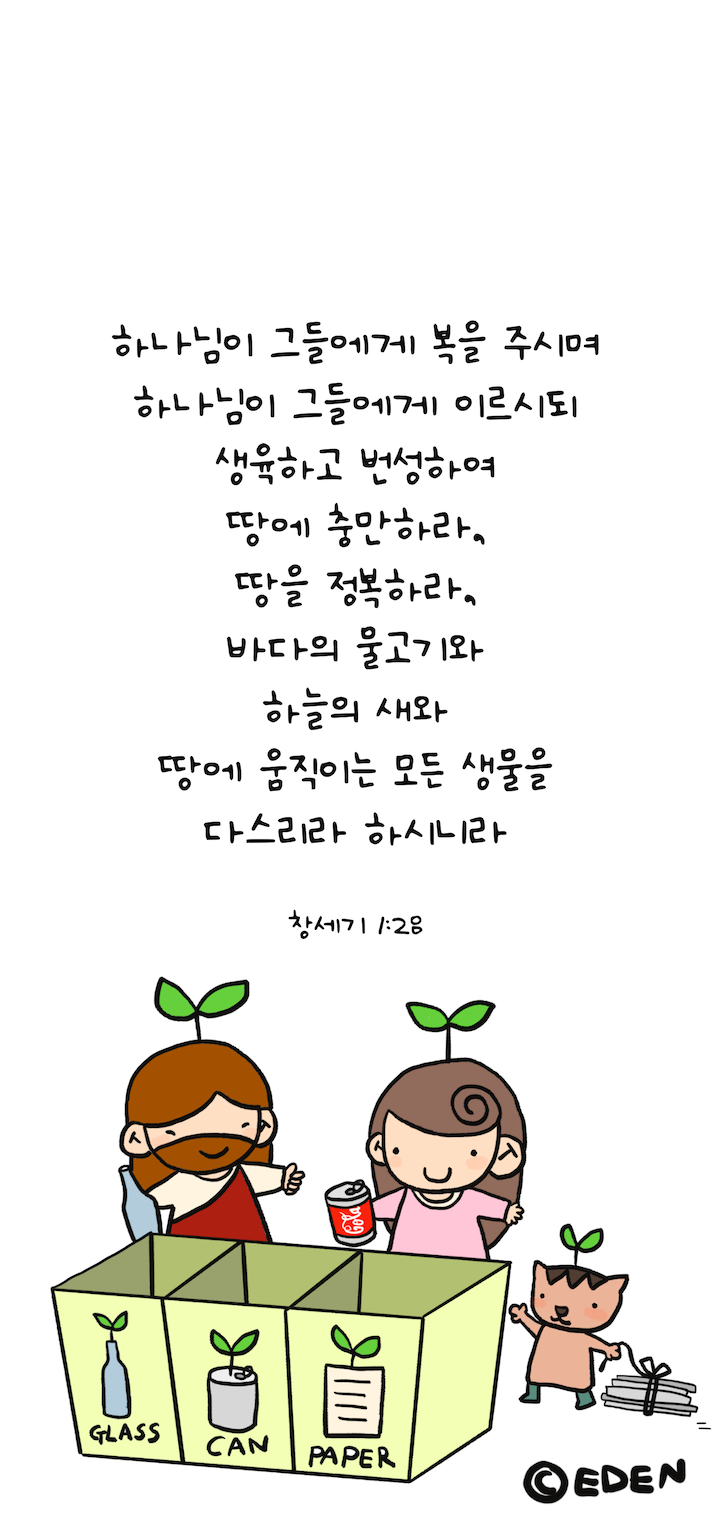 하나님이 그들에게 복을 주시며
하나님이 그들에게 이르시되
생육하고 번성하여
땅에 충만하라,
땅을 정복하라,
바다의 물고기와
하늘의 새와
땅에 움직이는 모든 생물을
다스리라 하시니라
창세기 1:28
Cola
GLASS
CAN
PAPER
©EDEN